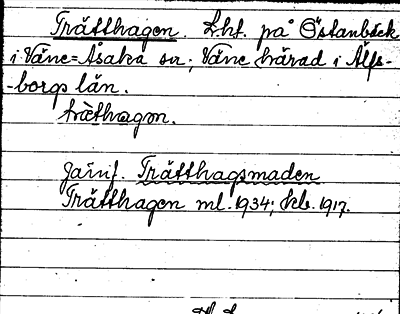 Trätthagen. Lht. på Östanbäck
i Väne-Åsaka sn; Väne härad i Älfs-
-borgs län.
trèthagən.
Jämf. Trätthagsmaden
Trätthagen ml. 1934; kb. 1917.